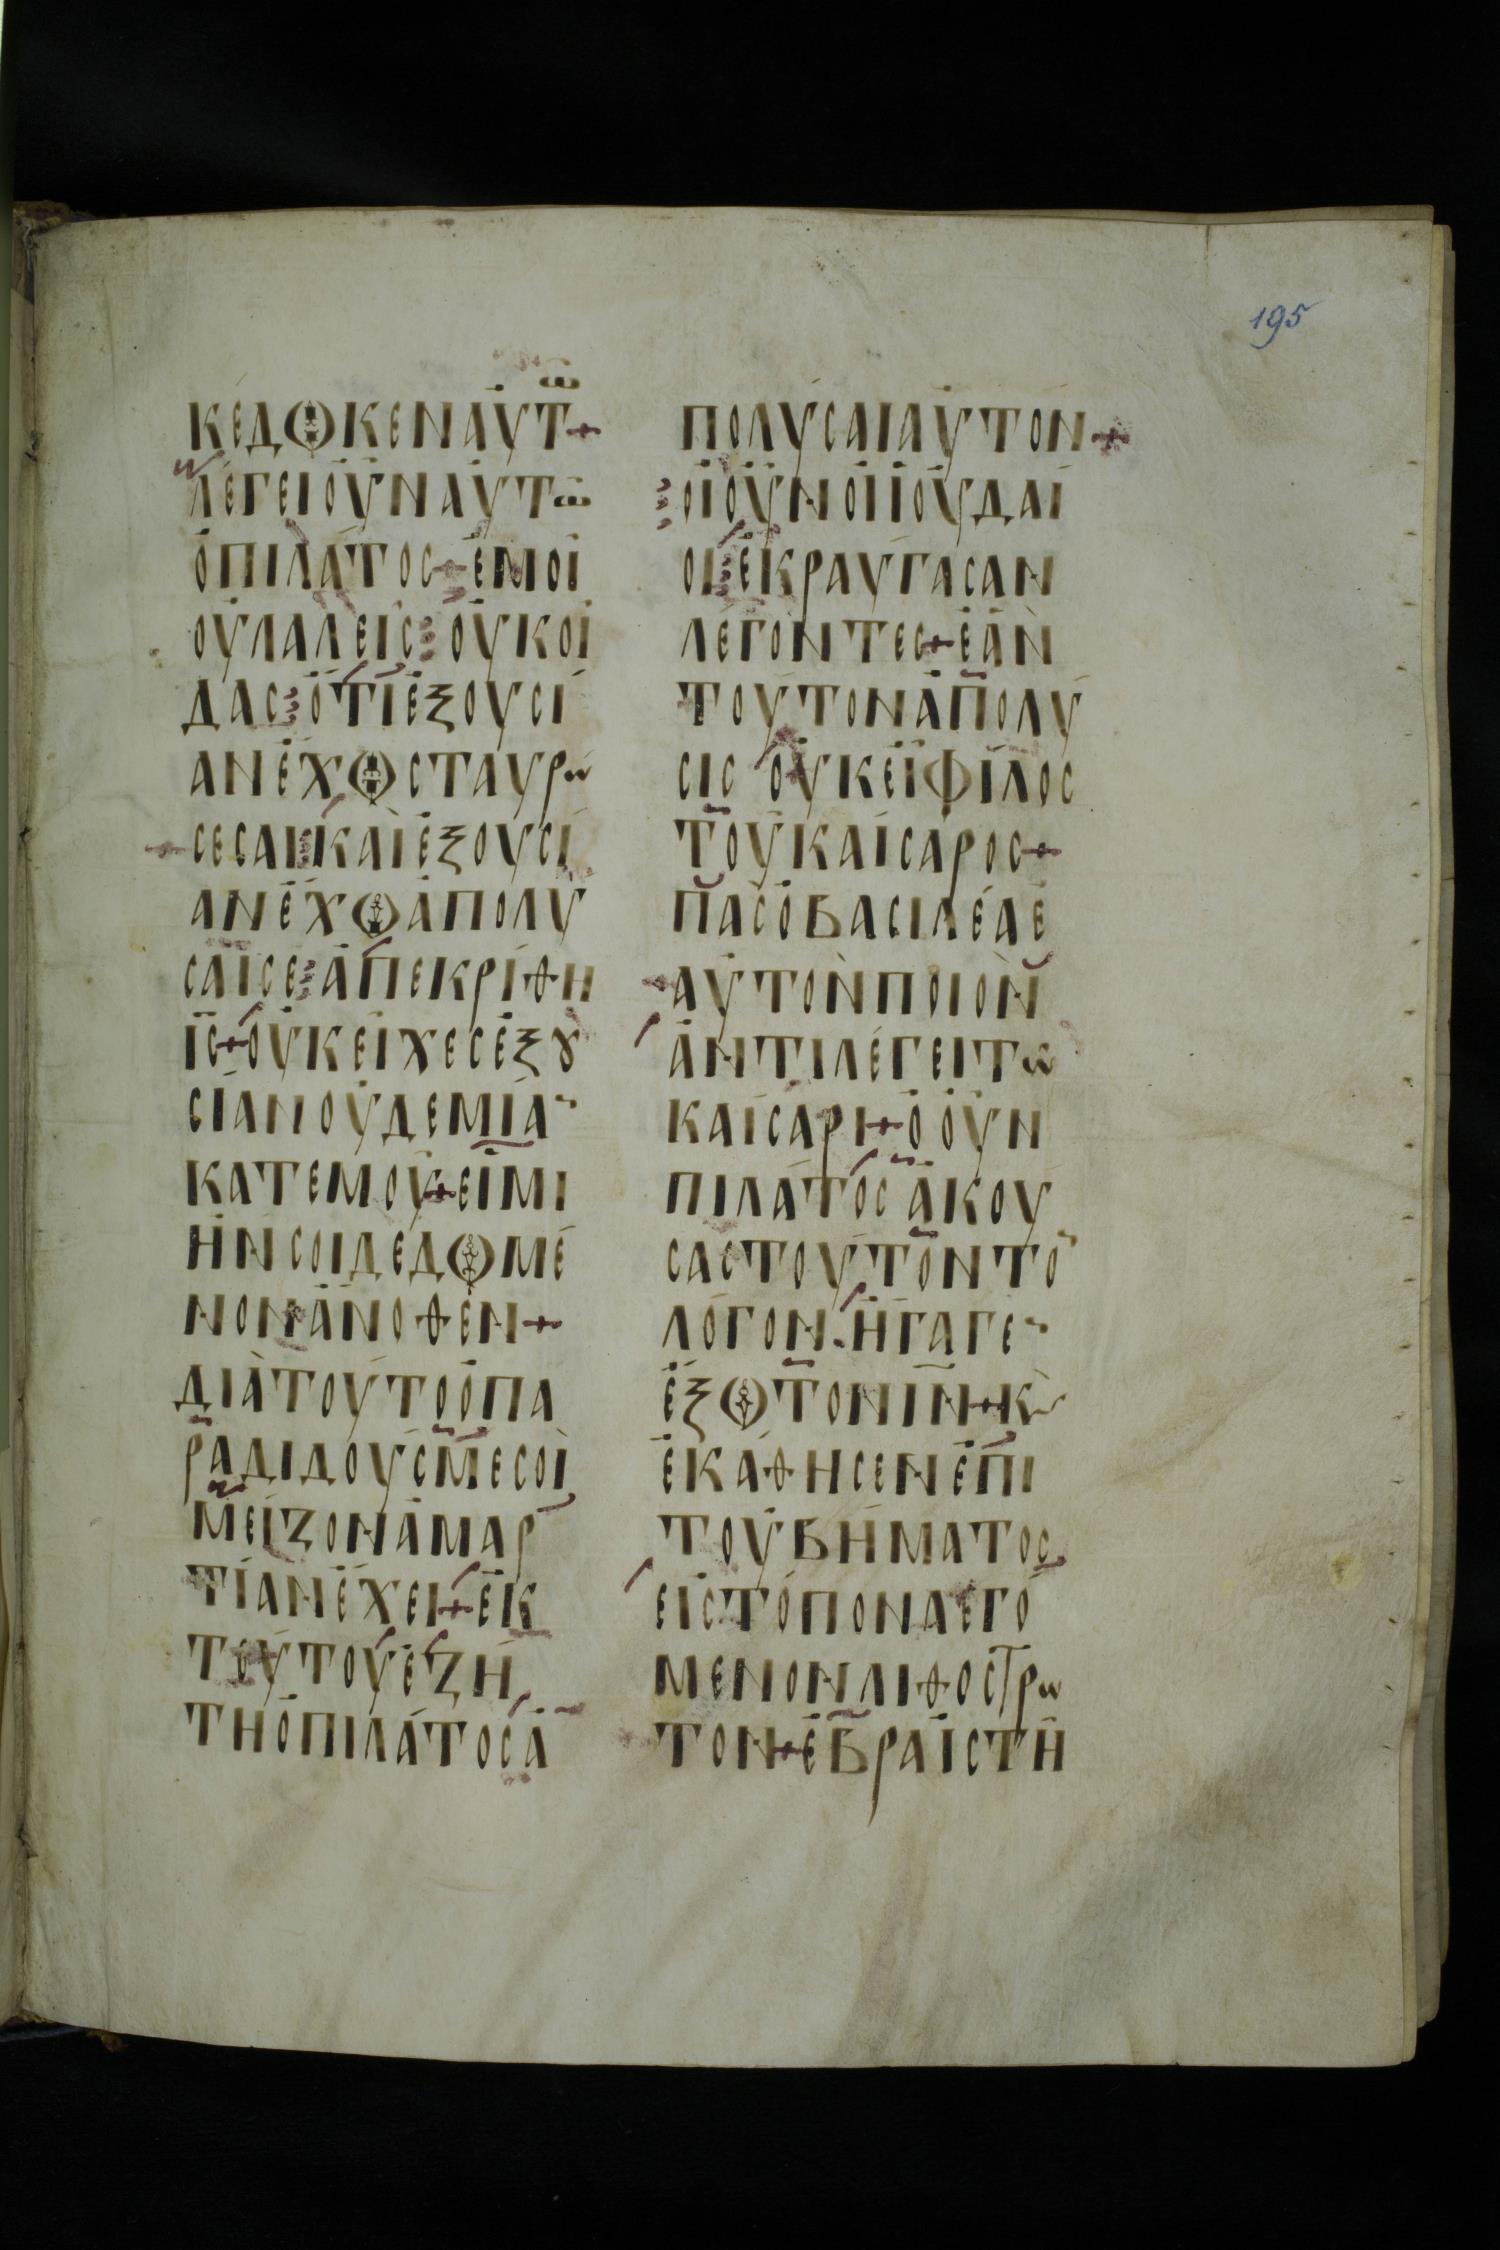 195
ΚΕΔΟΚΕΝΑΥΤω
ΛΕΓΕΙΟΥΝΑΥΤω
ΟΠΙΛΑΤΟΣ+ΕΜΟΙ
ΟΥΛΑΛΕΙΣ ΟΥΚΟΙ
ΔΑΣ ΟΤΙΕΞΟΥΣΙ
ΑΝΕΧΟΣΤΑΥΡω
ΣΕΣΑΙ ΚΑΙΕΞΟΥΣΙ
ΑΝΕΧΟΑΠΟΛΥ
ΣΑΙΣΕ ΑΠΕΚΡΙΘΗ
ΙΣ+ΟΥΚΕΙΧΕΣΕΞȣ
ΣΙΑΝΟΥΔΕΜΙΑ
ΚΑΤΕΜΟΥ+ΕΙΜΙ
ΗΝΣΟΙΔΕΔΟΜΕ
ΝΟΝΑΝΟΘΕΝ+
ΔΙΑΤΟΥΤΟΟΠΑ
ΡΑΔΙΔΟΥΣΜΕΣΟΙ
ΜΕΙΖΟΝΑΜΑΡ
ΤΙΑΝΕΧΕΙ+ΕΚ
ΤΟΥΤΟΥΕΖΗ
ΤΗΟΠΙΛΑΤΟΣΑ
ΠΟΛΥΣΑΙΑΥΤΟΝ+
ΟΙΟΥΝΟΙΙΟΥΔΑΙ
ΟΙ ΕΚΡΑΥΓΑΣΑΝ
ΛΕΓΟΝΤΕΣ+ΕΑΝ
ΤΟΥΤΟΝΑΠΟΛΥ
ΣΙΣ ΟΥΚΕΙΦΙΛΟΣ
ΤΟΥΚΑΙΣΑΡΟΣ+
ΠΑΣΟΒΑΣΙΛΕΑΕ
ΑΥΤΟΝΠΟΙΟΝ
ΑΝΤΙΛΕΓΕΙΤω
ΚΑΙΣΑΡΙ+ΟΟΥΝ
ΠΙΛΑΤΟΣΑΚΟΥ
ΣΑΣΤΟΥΤΟΝΤΟ
ΛΟΓΟΝ.ΗΓΑΓΕ
ΕΞΟΤΟΝΙΝ+Κ
ΕΚΑΘΗΣΕΝΕΠΙ
ΤΟΥΒΗΜΑΤΟΣ
ΕΙΣΤΟΠΟΝΛΕΓΟ
ΜΕΝΟΝΛΙΘΟΣΤΡω
ΤΟΝ+ΕΒΡΑΙΣΤΗ